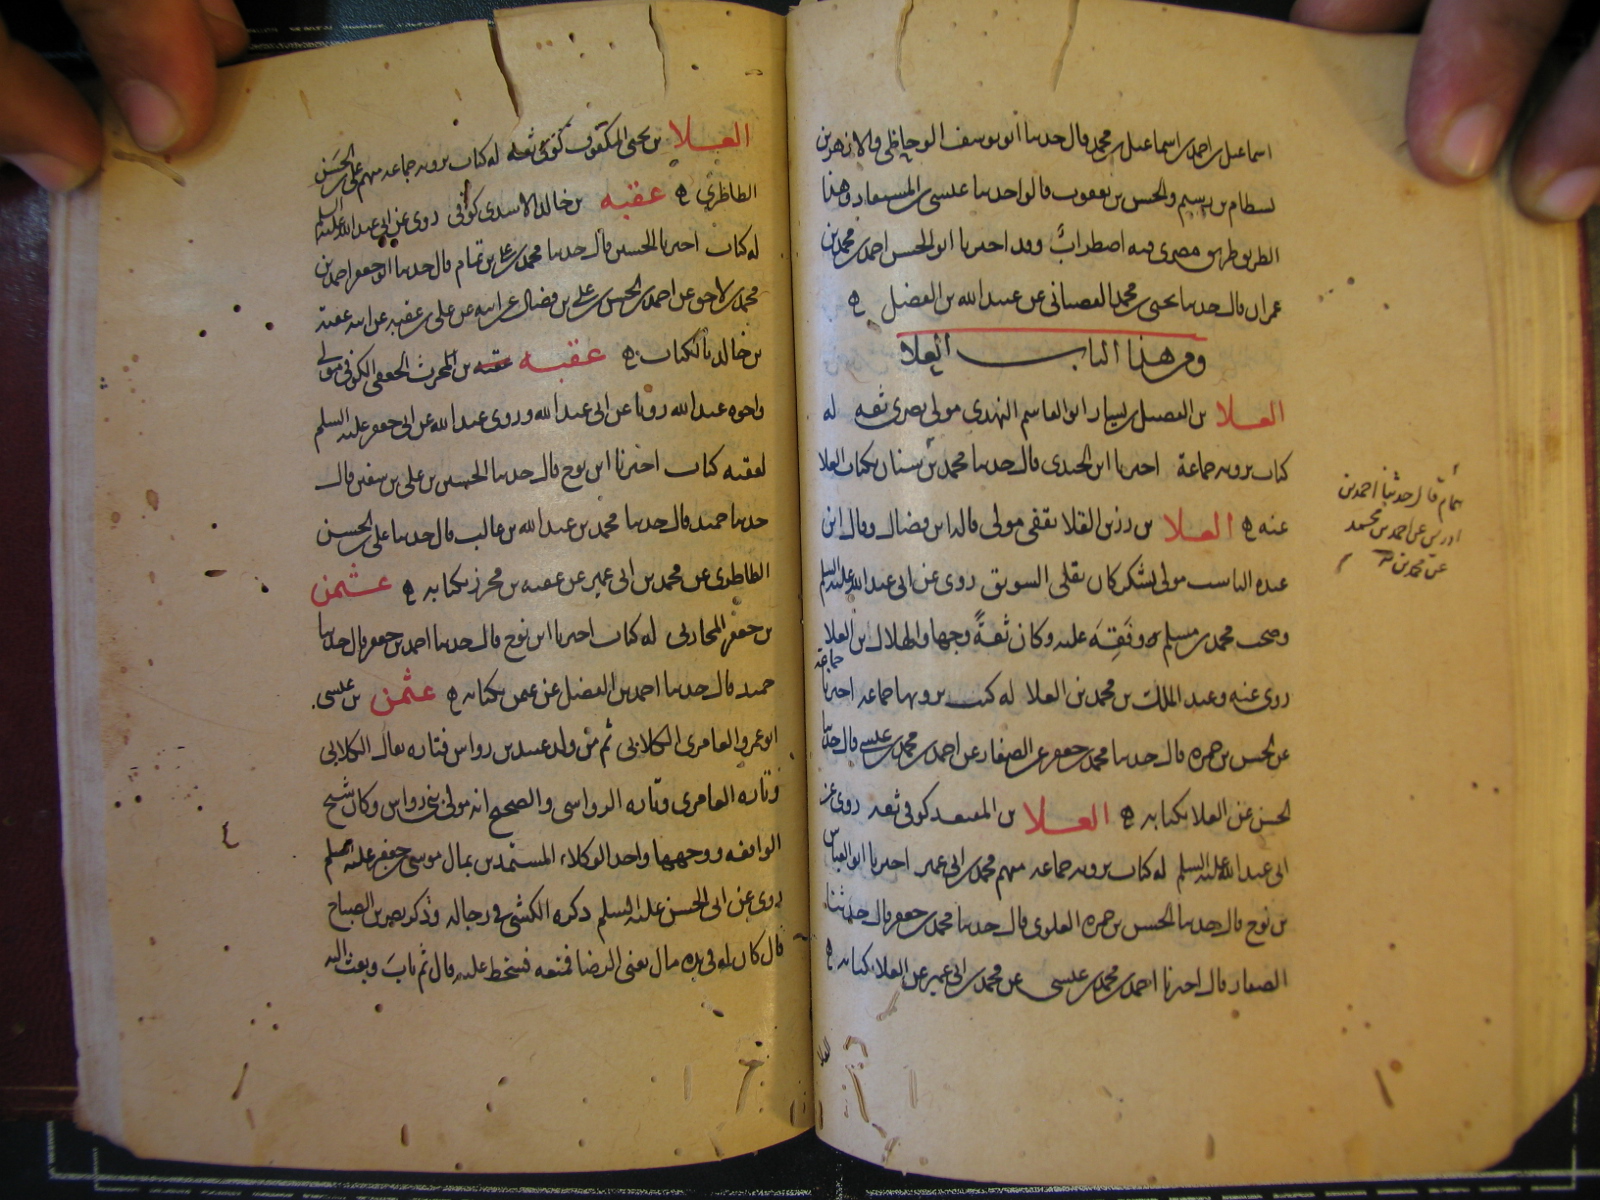 اسماعيل بن احمد بن اسماعيل بن محمد قال حدثنا ابو يوسف الوحاظى والازهر بن
بسطام بن رستم والحسن بن يعقوب قالوا حدثنا عيسى بن المستفاد وهذا
الطريق طريق مصرى فيه اضطرابٌ وقد اخبرنا ابو الحسن احمد بن محمد بن
عمران قال حدثنا يحيى بن محمد القصبانى عن عبيد الله بن الفضل ه
ومن هذا الباب العلا
العلا بن الفضيل بن يسار ابو القاسم النهدى مولى بصرى ثقه له
كتاب يرويه جماعة اخبرنا ابن الجندى قال حدثنا محمد بن سنان بكتاب العلا
عنه ه العلا بن رزين القلا ثقفى مولى قاله ابن فضال وقال ابن
عبده الناسب مولى يشكر كان يقلى السويق روى عن ابى عبد الله عليه السلم
وصحب محمد بن مسلم وفَقِهَ عليه وكان ثقةً وجها وهلال بن العلا
روى عنه وعبد الملك بن محمد بن العلا له كتب يرويها جماعه اخبرنا جماعة
عن الحسن بن حمزه قال حدثنا محمد بن جعفر عن الصفار عن احمد بن محمد بن عيسى قال حدثنا
الحسن عن العلا بكتابه ه العلا بن المقعد كوفى ثقه روى عن
ابى عبد الله عليه السلم له كتاب يرويه جماعه منهم محمد بن ابى عمير اخبرنا ابو العباس
بن نوح قال حدثنا الحسن بن حمزه العلوى قال حدثنا محمد بن جعفر قال حدثنا
الصفار قال اخبرنا احمد بن محمد بن عيسى عن محمد بن ابى عمير عن العلا بكتابه ه
تمام قال حدثنا احمد بن
ادريس عن احمد بن محمد
عن محمد بن
العلا بن يحيى المكفوف كوفى ثقه له كتاب يرويه جماعه منهم على بن الحسن
الطاطرى ه عقبه بن خالد الاسدى كوفى روى عن ابى عبد الله عليه السلم
له كتاب اخبرنا الحسين قال حدثنا محمد بن على بن تمام قال حدثنا ابو جعفر احمد بن
محمد بن لاحق عن احمد بن الحسن بن على بن فضال عن ابيه عن على بن عقبه عن ابيه عقبه
بن خالد بالكتاب ه عقبه بن المحرث الجعفى الكوفى مولى
واخوه عبد الله رويا عن ابى عبد الله وروى عبد الله عن ابى جعفر عليه السلم
لعقبه كتاب اخبرنا ابن نوح قال حدثنا الحسين بن على بن سفين قال
حدثنا حميد قال حدثنا محمد بن عبد الله بن غالب قال حدثنا على بن الحسن
الطاطرى عن محمد بن ابى عمير عن عقبه بن محرز بكتابه ه عثمن
بن جعفر المحاربى له كتاب اخبرنا ابن نوح قال حدثنا احمد بن جعفر قال حدثنا
حميد قال حدثنا احمد بن الفضل عن عثمن بكتابه ه عثمن بن عيسى
ابو عمرو العامرى الكلابى ثم من ولد عبيد بن رواس فتاره يقال الكلابى
وتاره العامرى وتاره الرواسى والصحيح انه مولى بنى رواس وكان شيخ
الواقفه ووجهها واحد الوكلاء المستبدين بمال موسى بن جعفر عليه السلم
روى عن ابى الحسن عليه السلم ذكره الكشى فى رجاله وذكر نصر بن الصباح
قال كان له فى يده مال يعنى الرضا فمنعه فسخط عليه قال ثم تابَ وبعث اليه
٤